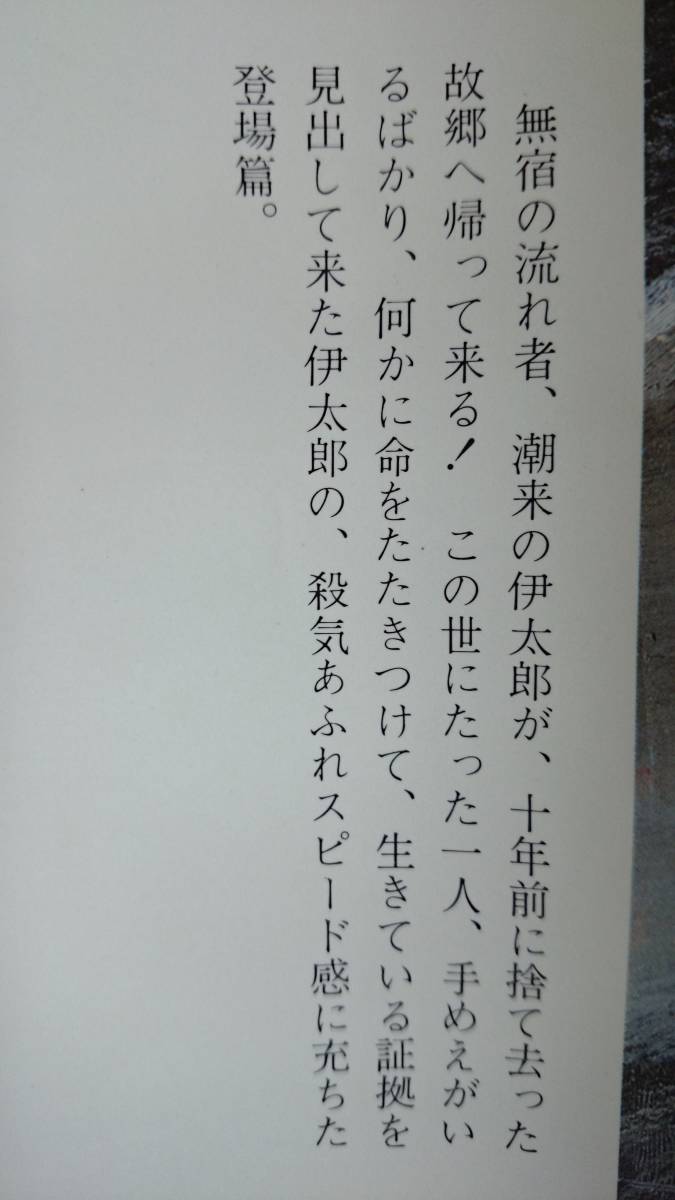 無宿の流れ者、潮来の伊太郎が、十年前に捨て去った
故郷へ帰って来る！　この世にたった一人、手めえがい
るばかり、何かに命をたたきつけて、生きている証拠を
見出して来た伊太郎の、殺気あふれスピード感に充ちた
登場篇。